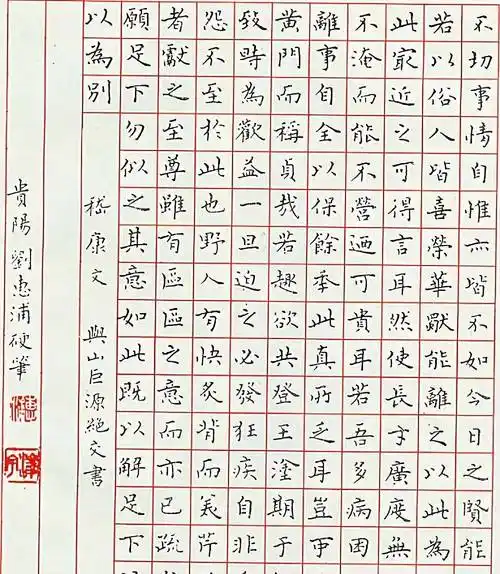 不切事情自惟亦皆不如今日之賢能
若以俗人皆喜榮華獸能離之以此為
此最近之可得言耳然使長才廣度無
不淹而能不營迺可貴耳若吾多病困
離事自全以保餘年此真所乏耳豈可
黄門而稱貞哉若趣欲共登王塗期于
致時為歡益一旦迫之必發狂疾自非
怨不至於此也野人有快炙背而美芹
者獻之至尊雖有區區之意而亦已疏
願足下勿似之其意如此既以解足下
以為別 嵇康文 與山巨源絕交書
貴陽劉惠浦硬筆